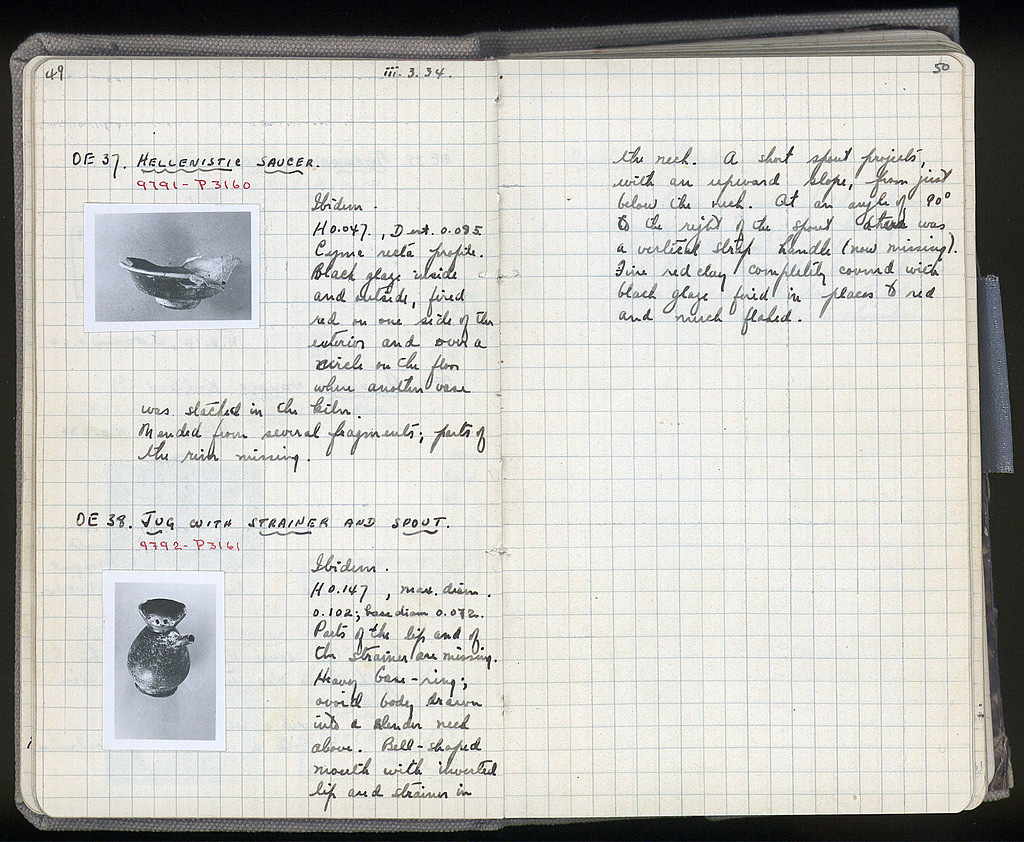 49
iii. 3. 34.
OE 37. HELLENISTIC SAUCER.
9791 - P 3160
Ibidem.
H 0.047. , D est. 0.095
Cyma recta profile.
Black glaze inside
and outside, fired
red on one side of the
exterior and over a
circle on the floor
where another vase
was stacked in the kiln.
Mended from several fragments; parts of
the rim missing.
OE 38. JUG WITH STRAINER AND SPOUT.
9792 - P 3161
Ibidem.
H 0.147 , max. diam.
0.102; base diam 0.072.
Parts of the lip and of
the strainer are missing.
Heavy base-ring;
ovoid body drawn
into a slender neck
above. Bell-shaped
mouth with inverted
lip and strainer in
50
the neck. A short spout projects,
with an upward slope, from just
below the neck. At an angle of 90°
to the right of the spout there was
a vertical strap handle (now missing).
Fine red clay completely covered with
black glaze fired in places to red
and much flaked.